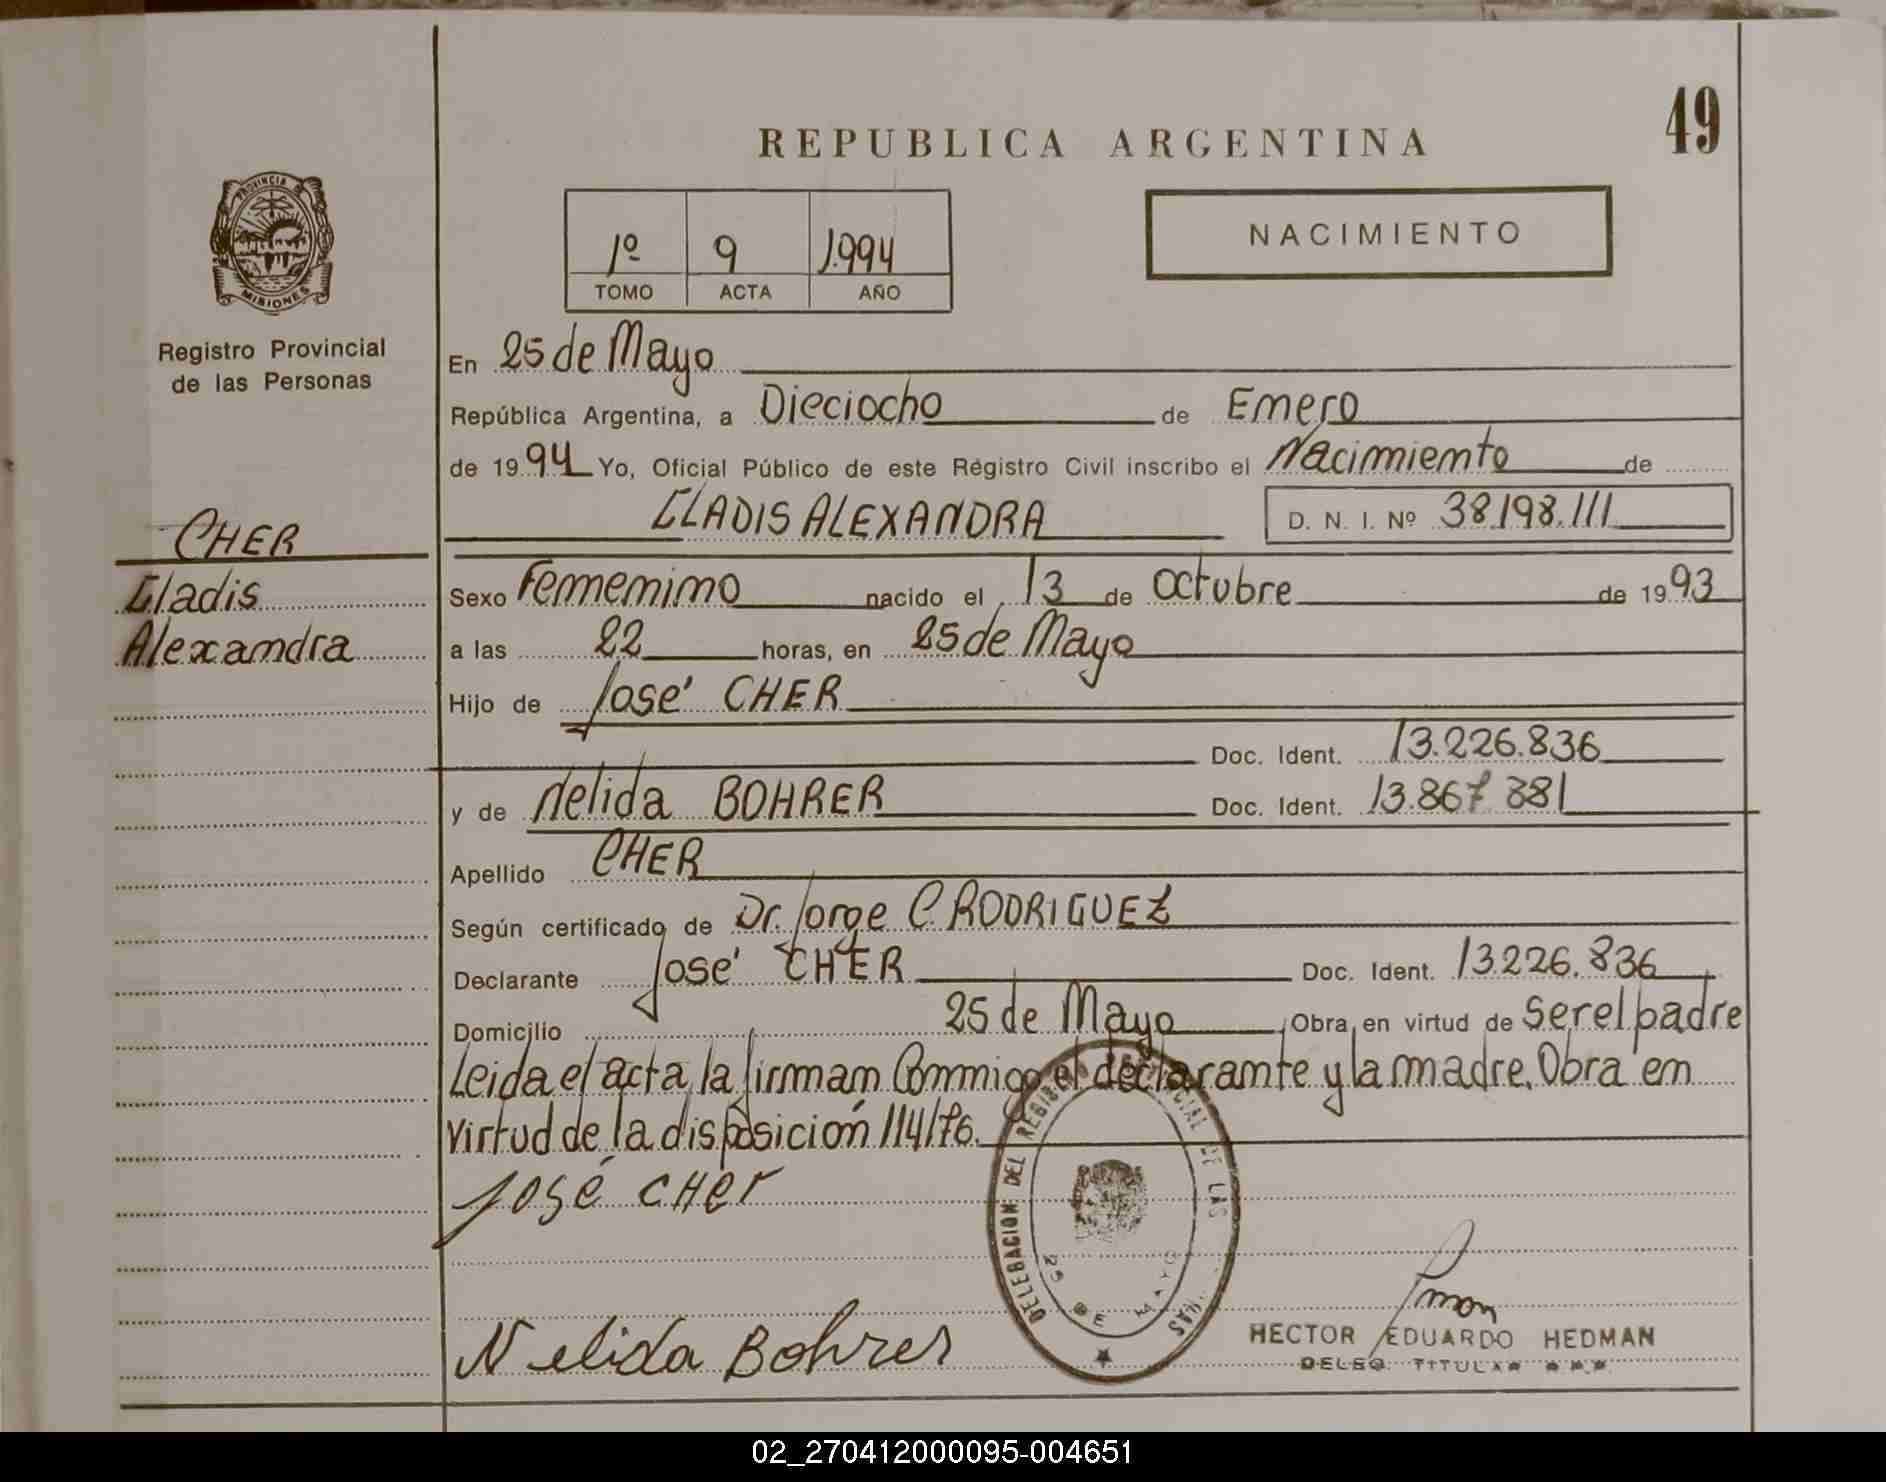 49
REPUBLICA ARGENTINA
PROVINCIA DE
MISIONES
1º 9 1.994
TOMO ACTA AÑO
NACIMIENTO
Registro Provincial
de las Personas
En 25 de Mayo
República Argentina, a Dieciocho de Enero
de 1994 Yo, Oficial Público de este Registro Civil inscribo el Nacimiento de
GLADIS ALEXANDRA D. N. I. Nº 38.198.111
CHER
Gladis
Alexandra
Sexo Femenino nacido el 13 de octubre de 1993
a las 22 horas, en 25 de Mayo
Hijo de José CHER
Doc. Ident. 13.226.836
y de Nelida BOHRER Doc. Ident. 13.867 881
Apellido CHER
Según certificado de Dr. Jorge C. RODRIGUEZ
Declarante José CHER Doc. Ident. 13.226.836
Domicilio 25 de Mayo Obra en virtud de Ser el padre
Leida el acta, la firman Conmigo el declarante y la madre. Obra en
virtud de la disposición 114/76.
José CHer
DELEGACION DEL REGISTRO PROVINCIAL DE LAS
25 DE MAYO
Nelida Bohrer
HECTOR EDUARDO HEDMAN
DELEG. TITULAR
02_270412000095-004651